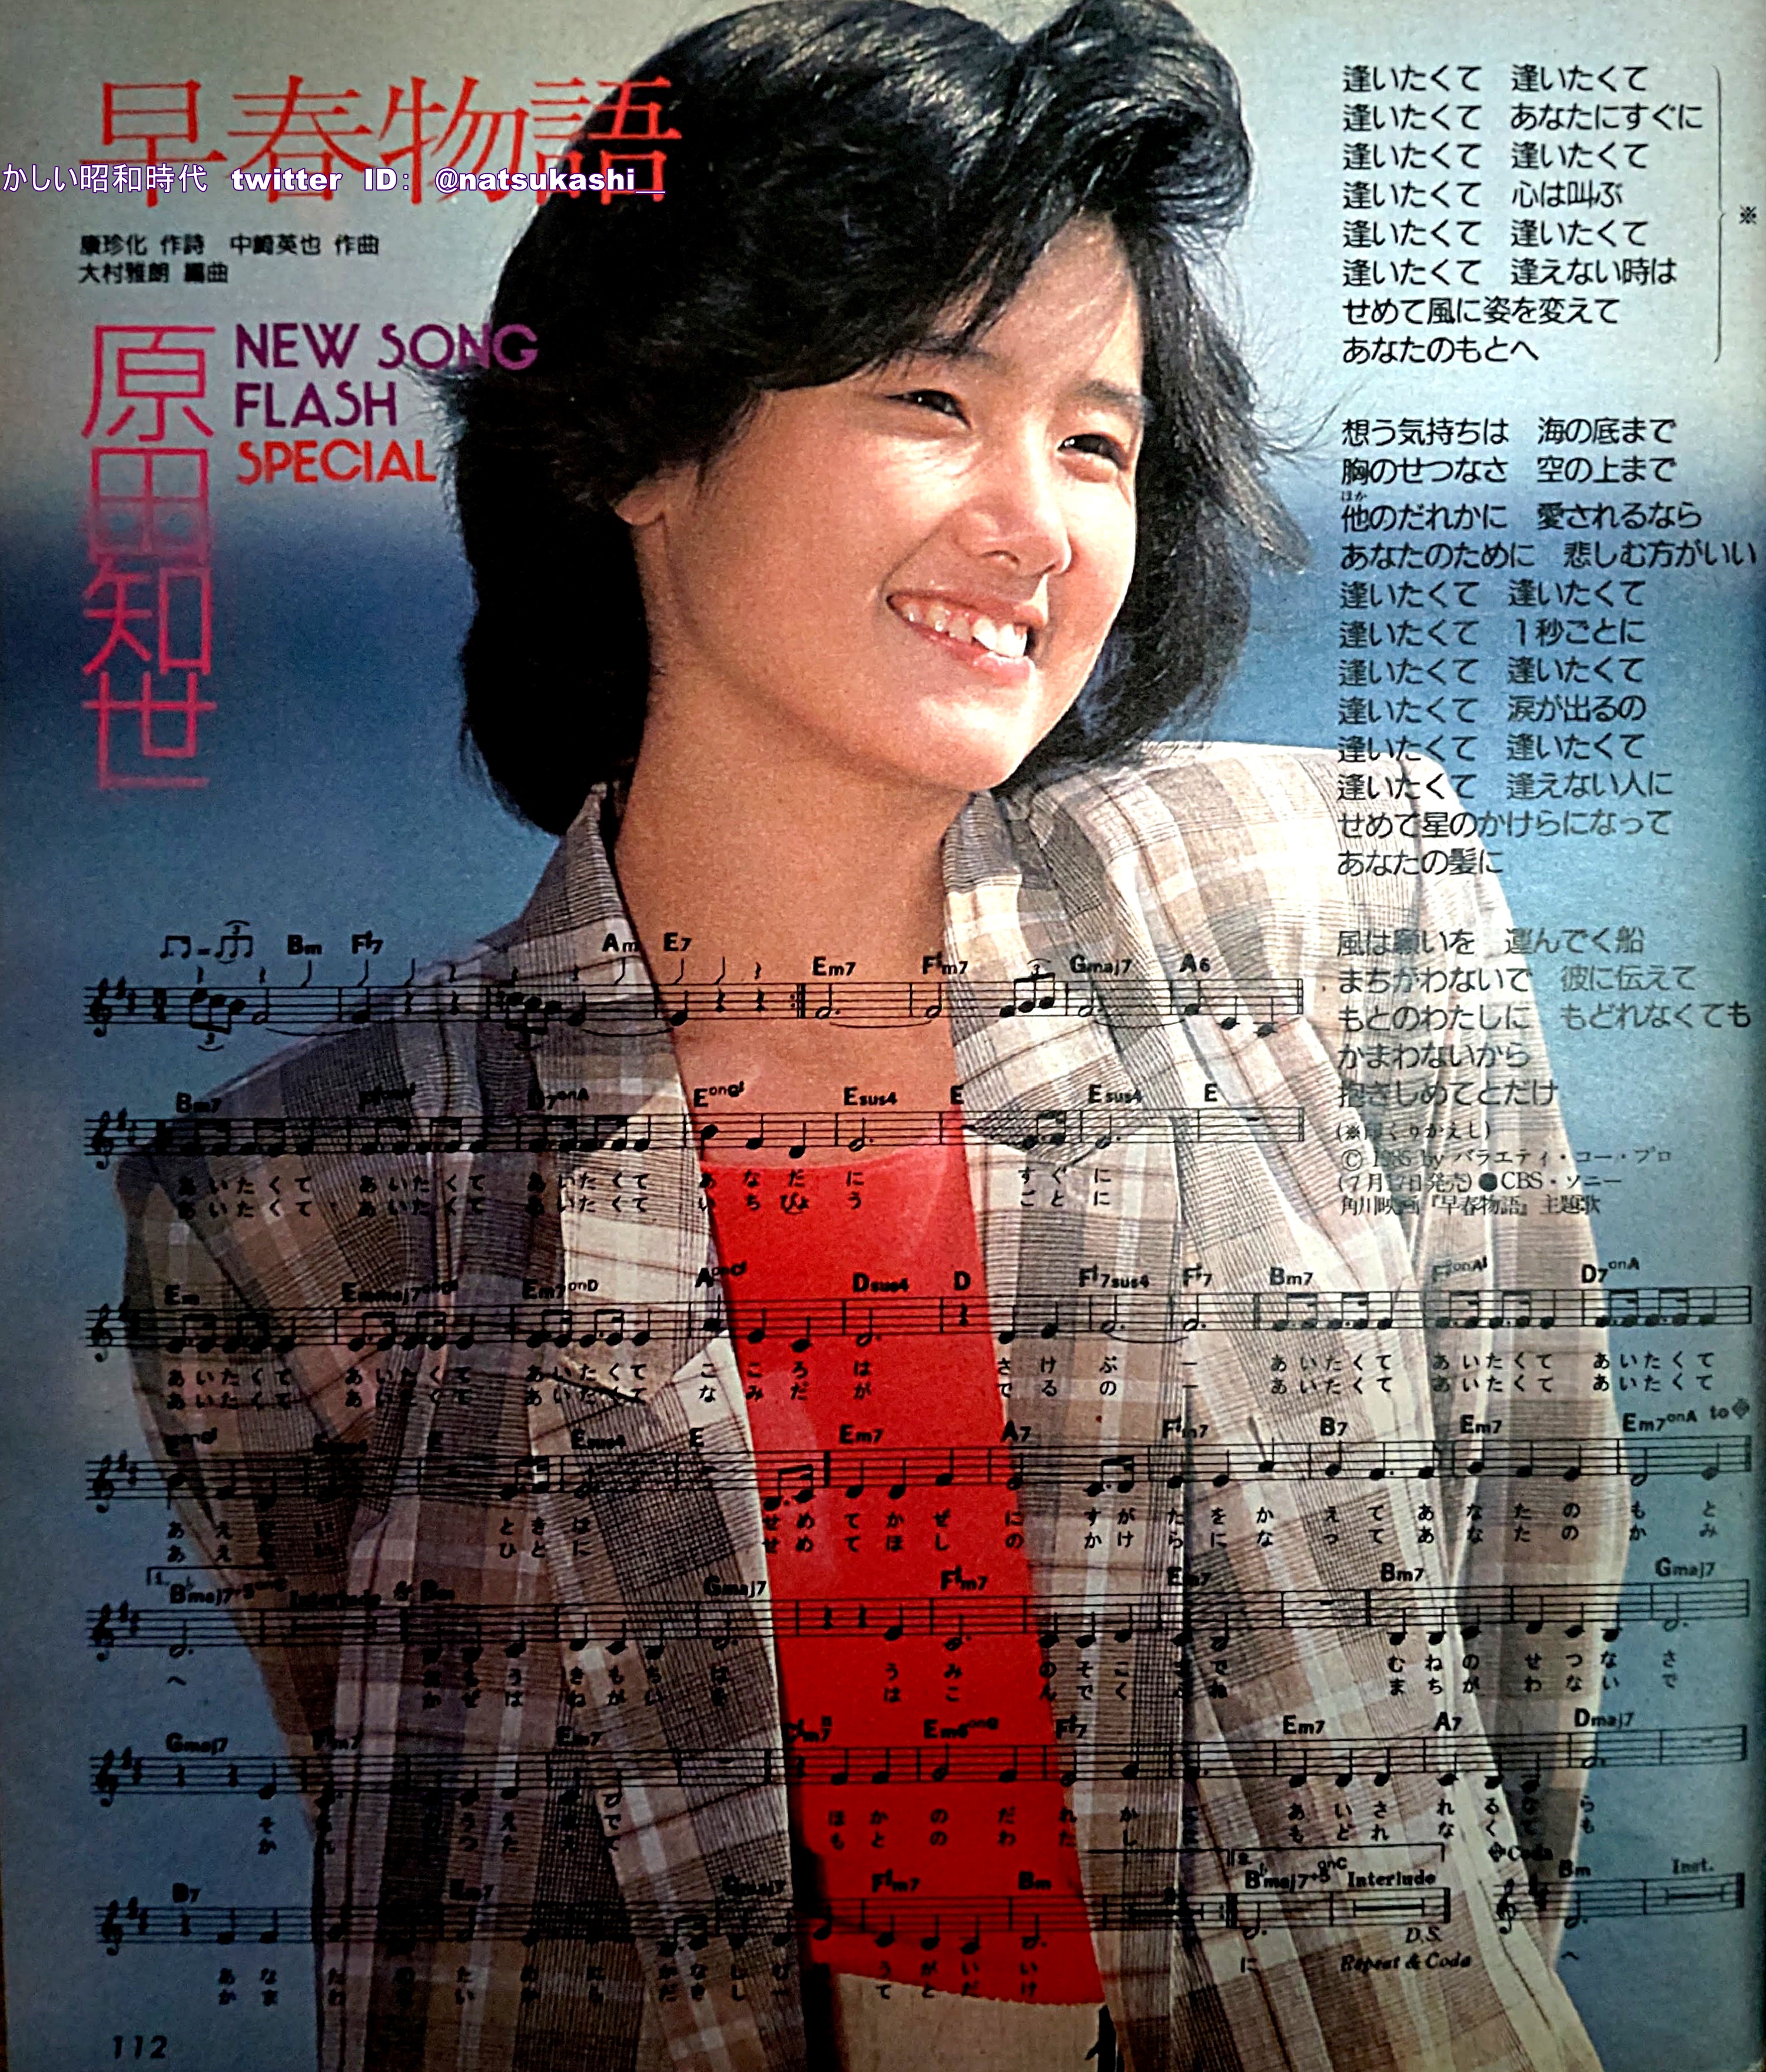 早春物語
かしい昭和時代 twitter ID: @natsukashi__
康珍化 作詩 中崎英也 作曲
大村雅朗 編曲
原田知世
NEW SONG
FLASH
SPECIAL
逢いたくて 逢いたくて
逢いたくて あなたにすぐに
逢いたくて 逢いたくて
逢いたくて 心は叫ぶ
逢いたくて 逢いたくて
逢いたくて 逢えない時は
せめて風に姿を変えて
あなたのもとへ
※
想う気持ちは 海の底まで
胸のせつなさ 空の上まで
ほか
他のだれかに 愛されるなら
あなたのために 悲しむ方がいい
逢いたくて 逢いたくて
逢いたくて 1秒ごとに
逢いたくて 逢いたくて
逢いたくて 涙が出るの
逢いたくて 逢いたくて
逢いたくて 逢えない人に
せめて星のかけらになって
あなたの髪に
風は願いを 運んでく船
まちがわないで 彼に伝えて
もとのわたしに もどれなくても
かまわないから
抱きしめてとだけ
(※印くりかえし)
© 1985 by バラエティ・コー・プロ
(7月17日発売) ●CBS・ソニー
角川映画『早春物語』主題歌
Bm F#7 Am E7 Em7 F#m7 Gmaj7 A6
Bm7 D7onA Esus4 E Esus4 E
あいたくて あいたくて あいたくて あなたに すぐに
あいたくて あいたくて あいたくて いちびょう ごとに
Em Em7onD Dsus4 D F#7sus4 F#7 Bm7 D7onA
あいたくて あいたくて あいたくて こころは さけぶー あいたくて あいたくて あいたくて
あいたくて あいたくて あいたくて なみだが でるのー あいたくて あいたくて あいたくて
Esus4 E Em7 A7 F#m7 B7 Em7 Em7onA to
あえ ときは せめてかぜに すがたをかえて あなたのもと
あえ ひとに せめてほしの かけらになって あなたのかみ
1. Interlude Bm Gmaj7 F#m7 Em7 Bm7 Gmaj7
へ うみのそこ むねのせつなさ
はこんでく まちがわないで
Gmaj7 F#m7 Em7 F#7 Em7 A7 Dmaj7
ほかのだれか あいされる ら
もとのわたし もどれなく も
B7 Em7 Gmaj7 F#m7 Bm 2. Interlude Coda Bm Inst.
D.S.
に Repeat & Coda へ
112